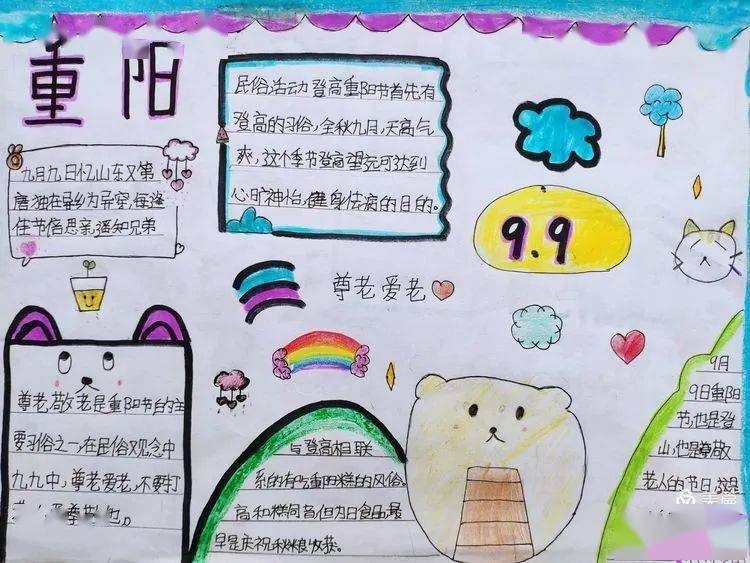 重阳
民俗活动登高重阳节首先有
登高的习俗,金秋九月,天高气
爽,这个季节登高望远可达到
心旷神怡,健身祛病的目的。
九月九日忆山东又第
唐独在异乡为异客,每逢
佳节倍思亲,遥知兄弟
9.9
尊老爱老
尊老,敬老是重阳节的主
要习俗之一,在民俗观念中
九九中,尊老爱老,不要打
与登高相联
系的有吃重阳糕的风俗
高和糕同音但为日食品,最
早是庆祝秋粮收获。
9月
9日重阳
节,也是登
山,也是尊敬
老人的节日,这是
美篇